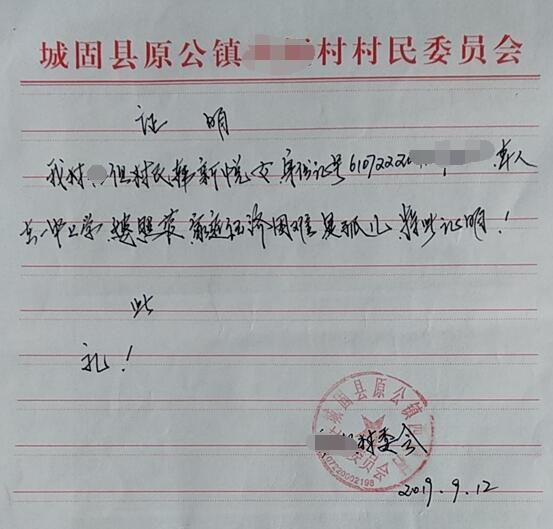 城固县原公镇 村村民委员会
证 明
我村 组村民韩新悦 女 身份证号6107222 本人
在一中上学 家庭经济困难是孤儿 特此证明!
此
礼!
城固县原公镇
村委会
委员会
6107220002198
2019.9.12